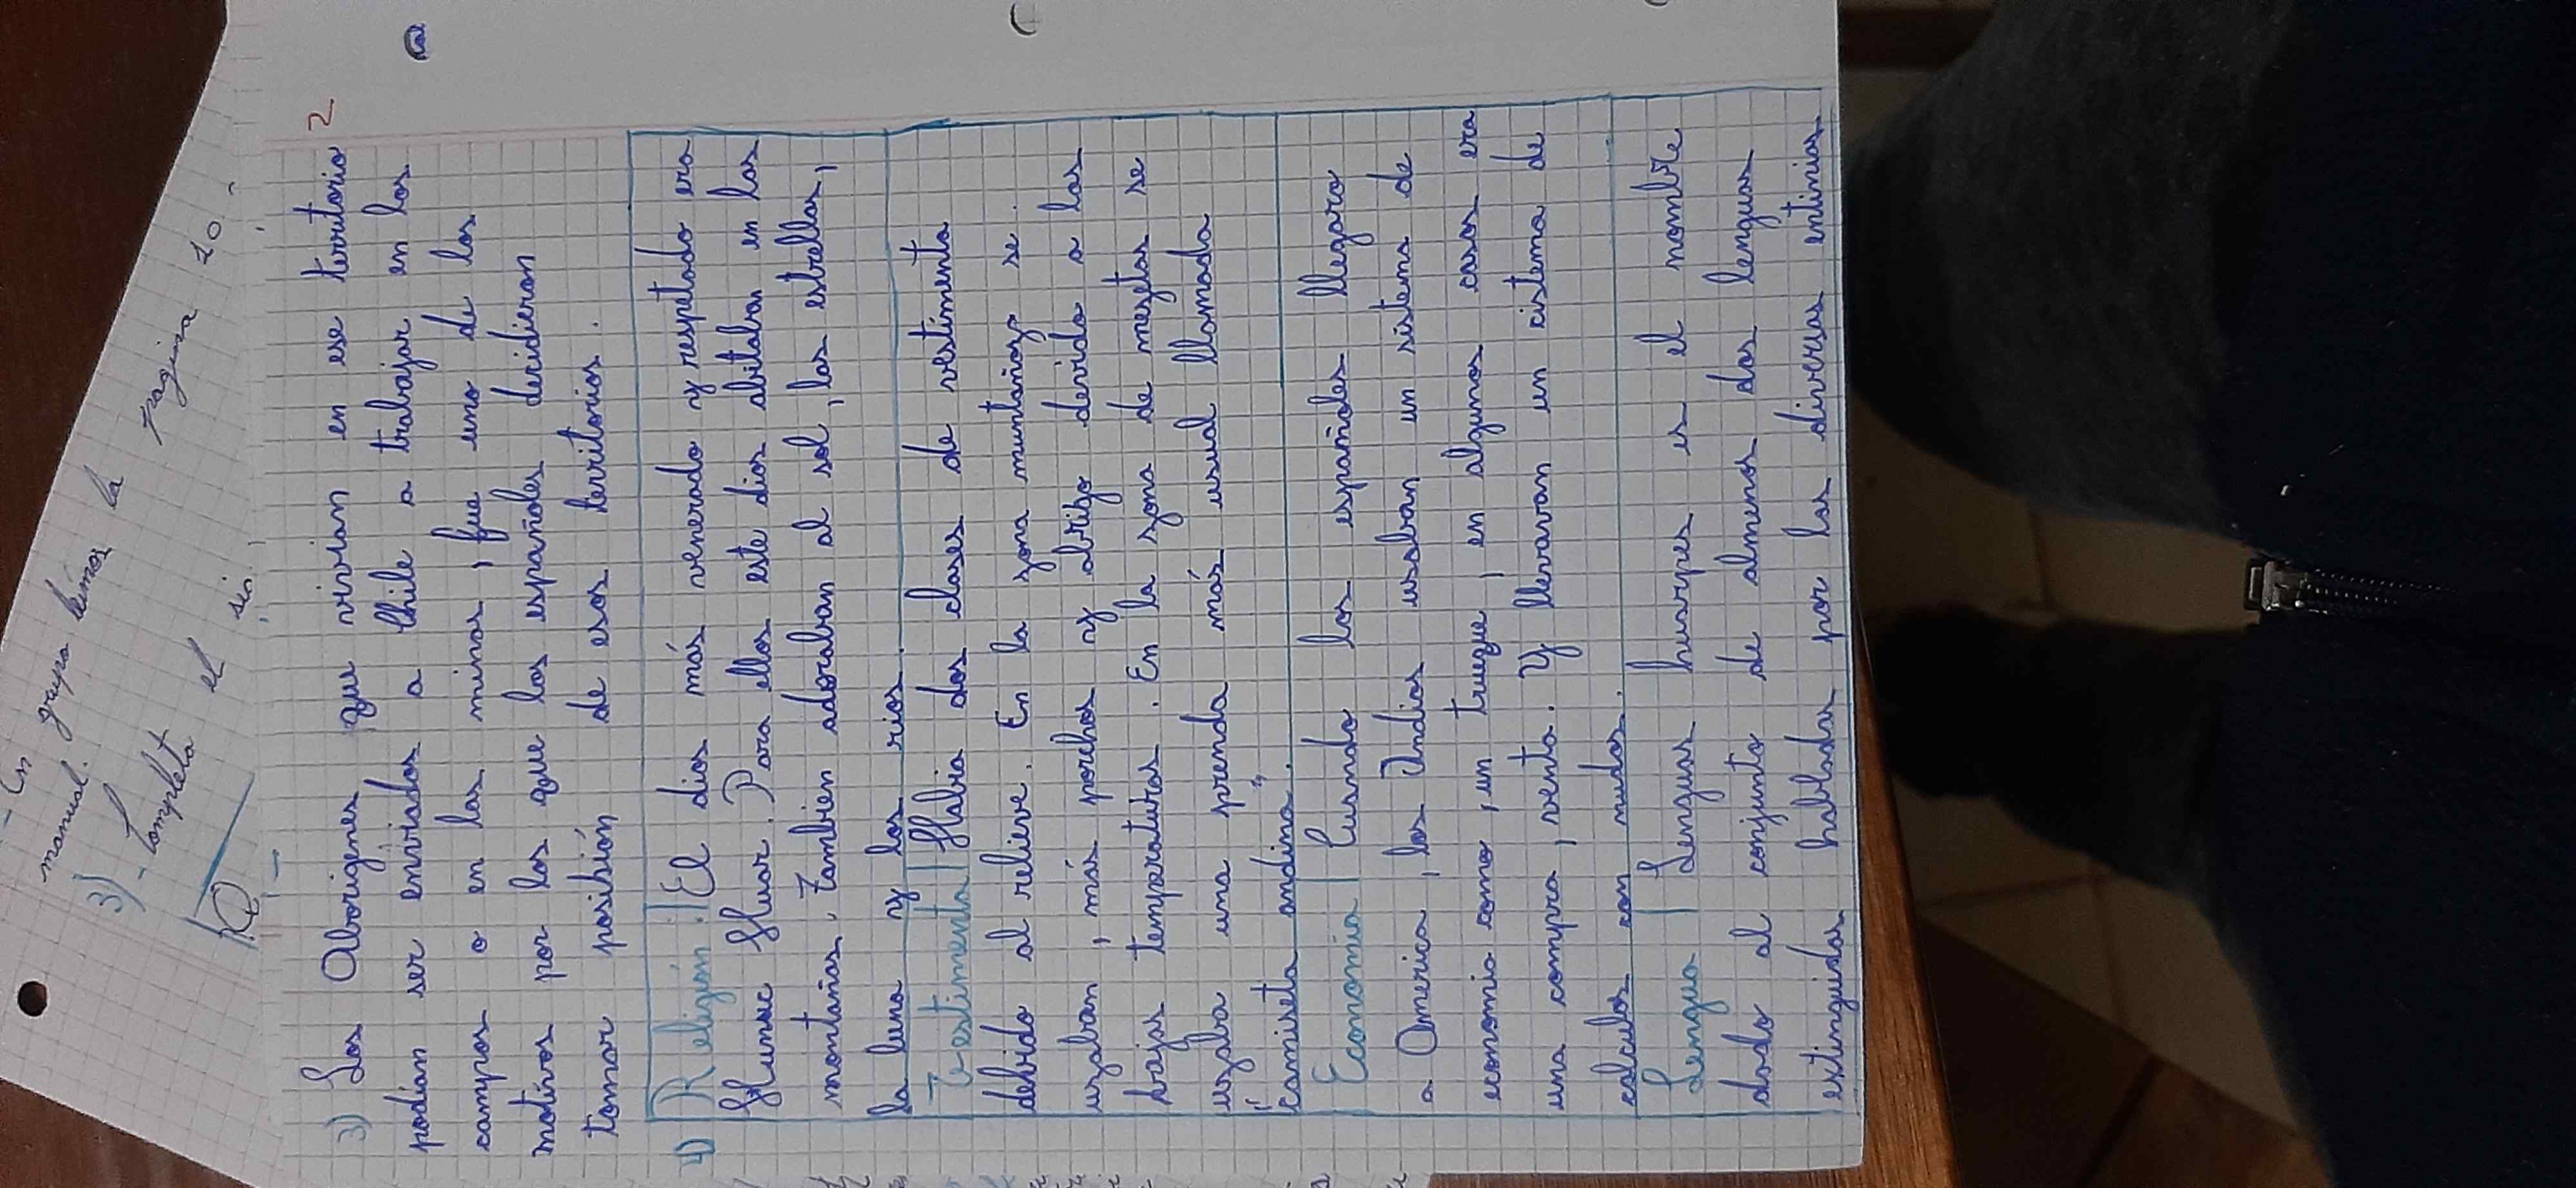 - En grupo leímos la pagina 10 -
manual.
3) - Completa el
2
3) Los Aborigenes que vivian en ese territorio
podian ser enviados a Chile a trabajar en los
campos o en las minas, fue uno de los
motivos por los que los españoles decidieron
tomar posibión de esos territorios.
4) Religión: El dios más venerado y respetado era
Hunuc Huar. Para ellos este dios abitaban en las
montañas. Tambien adoraban al sol, las estrellas,
la luna y los rios
Vestimenta Habia dos clases de vestimenta
debido al relieve. En la zona muntañoz se
uzaban, más ponchos y abrigo devido a las
bajas temperaturas. En la zona de mezetas se
uzaba una prenda más usual llamada
"camiseta andina".
Economia Cuando los españoles llegaro
a America, los Indios usaban un sistema de
economia como, un trueque, en algunos casos era
una compra, venta. Y llevavan un cistema de
calculos con nudos.
Lengua Lenguas huarpes es el nombre
dado al conjunto de almenos dos lenguas
extinguidas habladas por las diversas entinias